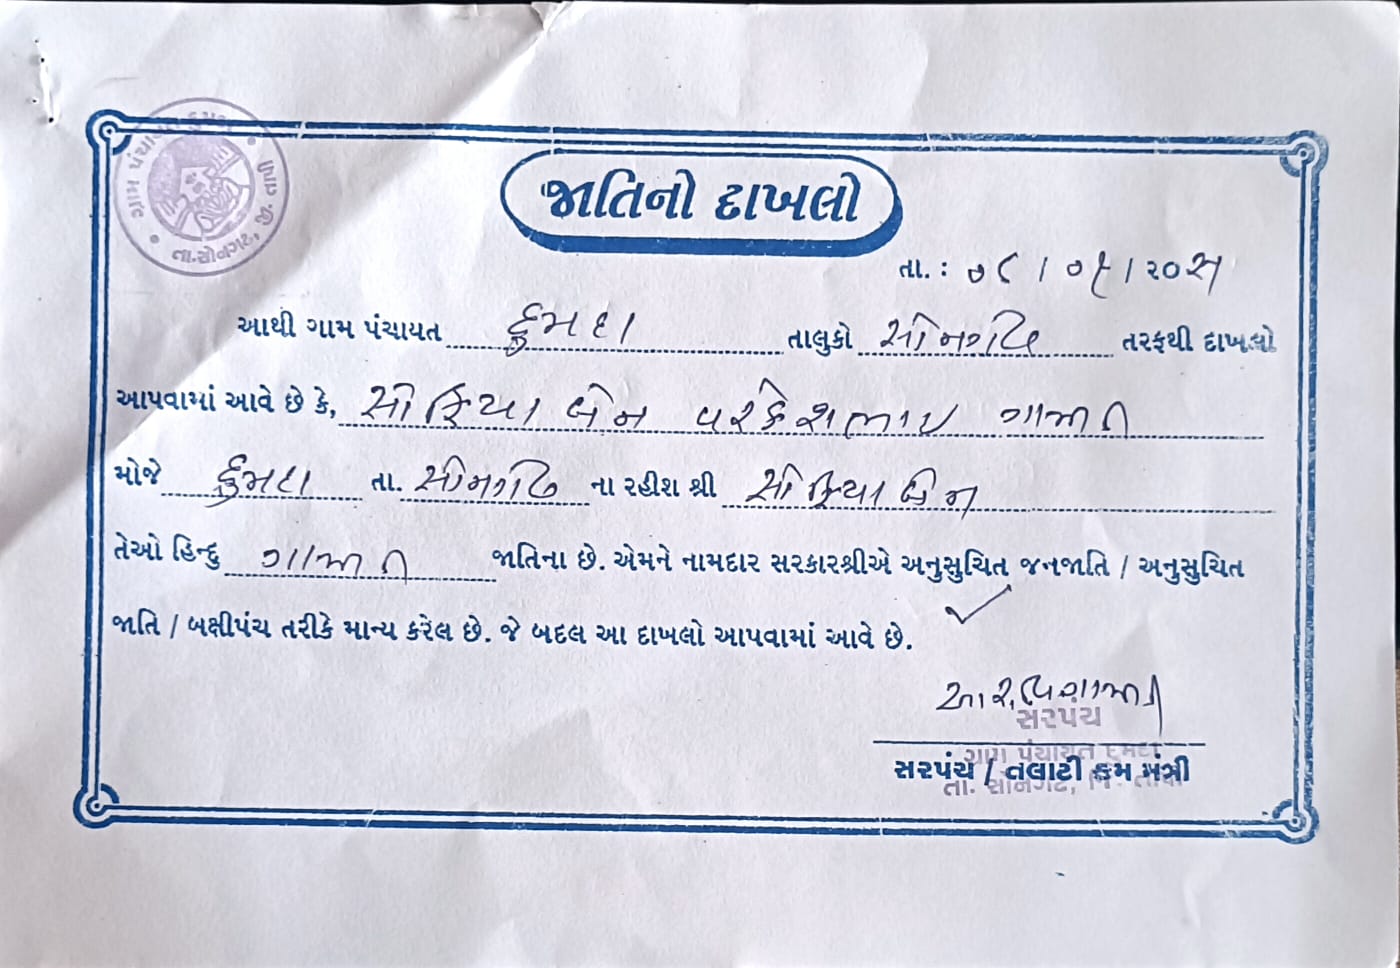 તા. સોનગઢ, જી. તાપી
જાતિનો દાખલો
તા. : ૦૮ / ૦૧ / ૨૦૨૧
આથી ગામ પંચાયત ડુમદા તાલુકો સોનગઢ તરફથી દાખલો
આપવામાં આવે છે કે, સોફિયાબેન પરકેશભાઇ ગામીત
મોજે ડુમદા તા. સોનગઢ ના રહીશ શ્રી સોફિયાબેન
તેઓ હિન્દુ ગામીત જાતિના છે. એમને નામદાર સરકારશ્રીએ અનુસુચિત જનજાતિ / અનુસુચિત
જાતિ / બક્ષીપંચ તરીકે માન્ય કરેલ છે. જે બદલ આ દાખલો આપવામાં આવે છે.
સરપંચ
સરપંચ / તલાટી કમ મંત્રી